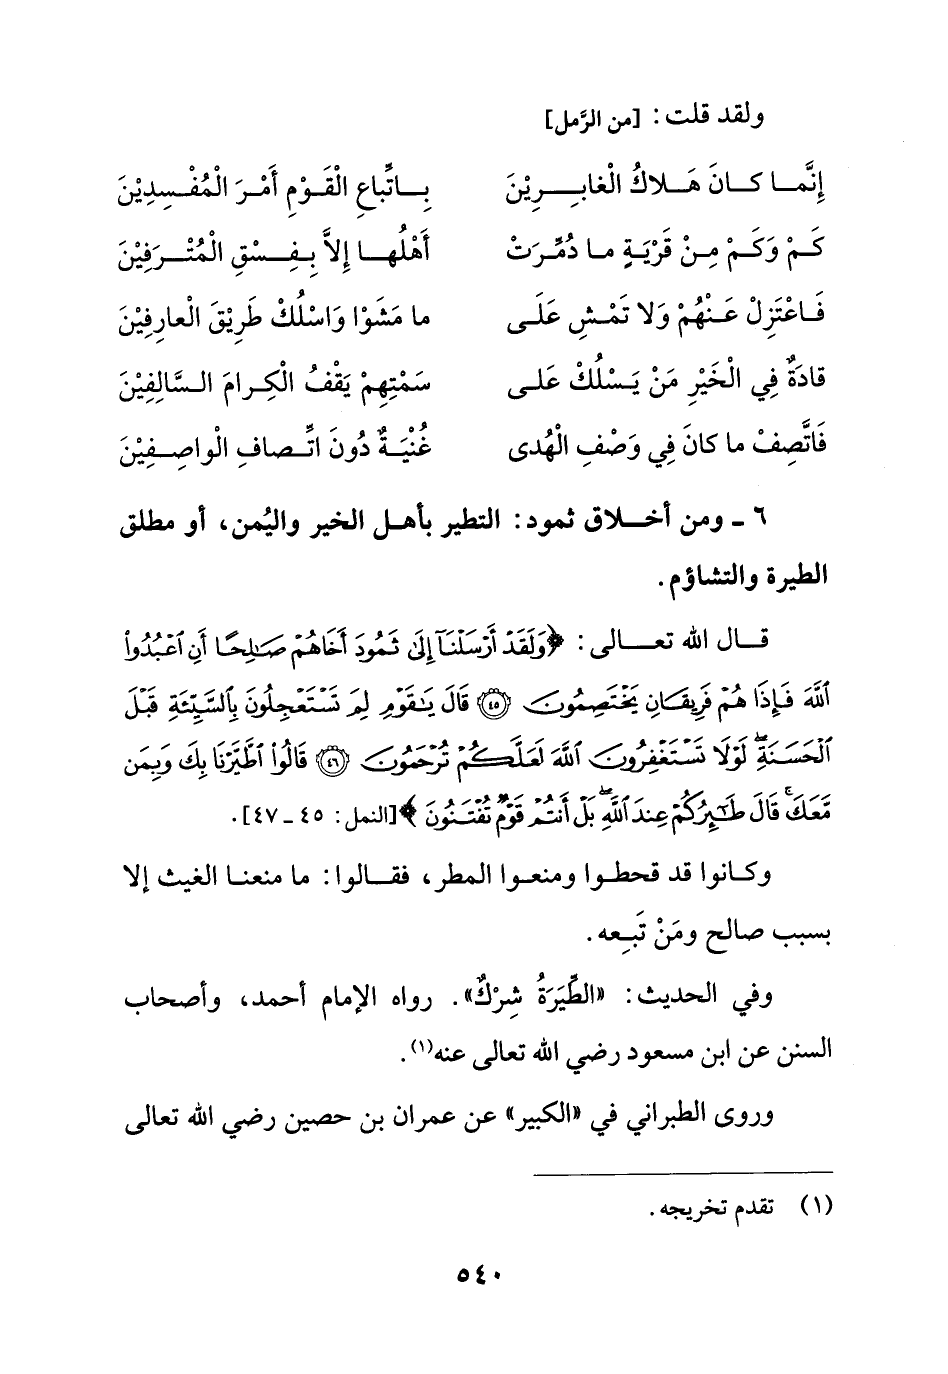 ولقد قلت: [من الرَّمل]
إِنَّمـا كـانَ هَـلاكُ الْغابِـرِيْنَ بِـاتِّباعِ الْقَـوْمِ أَمْرَ الْمُفْـسِدِيْنَ
كَـمْ وَكَـمْ مِـنْ قَرْيَـةٍ مـا دُمِّـرَتْ أَهْلُهـا إِلاَّ بِـفِـسْقِ الْمُتْـرَفِيْنَ
فَـاعْتَزِلْ عَـنْهُمْ وَلا تَمْـشِ عَلَـى ما مَشَوْا وَاسْلُكْ طَرِيْقَ الْعارِفِيْنَ
قادَةٌ فِي الْخَيْرِ مَنْ يَـسْلُكْ عَلـى سَمْتِهِمْ يَقْفُ الْكِـرامَ الـسَّالِفِيْنَ
فَاتَّصِفْ ما كانَ فِي وَصْفِ الْهُدى غُنْيَـةٌ دُونَ اتِّـصافِ الْواصِـفِيْنَ
٦ ـ ومن أخـلاق ثمود: التطير بأهـل الخير واليُمن، أو مطلق
الطيرة والتشاؤم.
قـال الله تعـالى: ﴿وَلَقَدْ أَرْسَلْنَآ إِلَىٰ ثَمُودَ أَخَاهُمْ صَٰلِحًا أَنِ ٱعْبُدُوا۟
ٱللَّهَ فَإِذَا هُمْ فَرِيقَانِ يَخْتَصِمُونَ ﴿٤٥﴾ قَالَ يَٰقَوْمِ لِمَ تَسْتَعْجِلُونَ بِٱلسَّيِّئَةِ قَبْلَ
ٱلْحَسَنَةِ ۖ لَوْلَا تَسْتَغْفِرُونَ ٱللَّهَ لَعَلَّكُمْ تُرْحَمُونَ ﴿٤٦﴾ قَالُوا۟ ٱطَّيَّرْنَا بِكَ وَبِمَن
مَّعَكَ ۚ قَالَ طَٰٓئِرُكُمْ عِندَ ٱللَّهِ ۖ بَلْ أَنتُمْ قَوْمٌ تُفْتَنُونَ﴾ [النمل: ٤٥ ـ ٤٧].
وكـانوا قد قحطـوا ومنعـوا المطر، فقـالوا: ما منعنـا الغيث إلا
بسبب صالح ومَنْ تَبِعه.
وفي الحديث: «الطِّيَرَةُ شِرْكٌ». رواه الإمام أحمد، وأصحاب
السنن عن ابن مسعود رضي الله تعالى عنه(١).
وروى الطبراني في «الكبير» عن عمران بن حصين رضي الله تعالى
(١) تقدم تخريجه.
٥٤٠